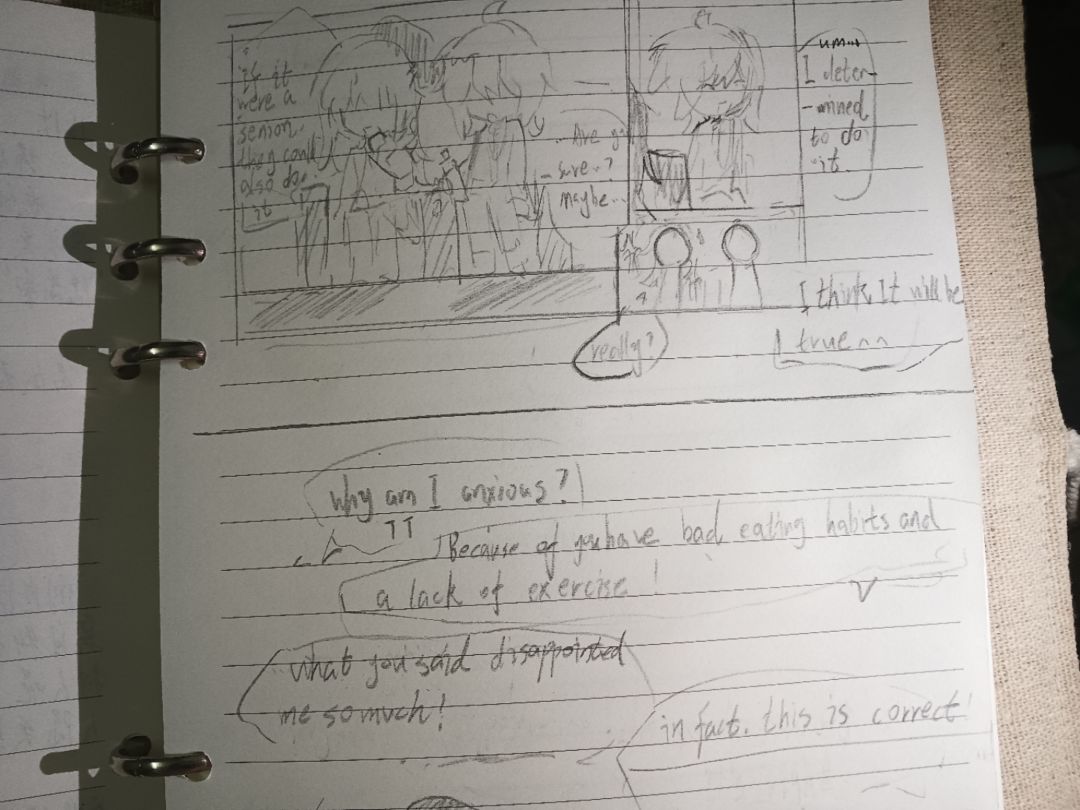 is it
were a
senson.
they could
also do
it
Are y
sure..?
maybe..
um...
I deter-
-mined
to do
it.
really?
I think It will be
true^^
Why am I anxious?
TT
Because of you have bad eating habits and
a lack of exercise!
what you said disappointed
me so much!
in fact. this is correct!